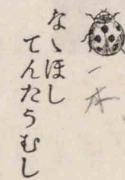 一本
なゝほし
てんたうむし